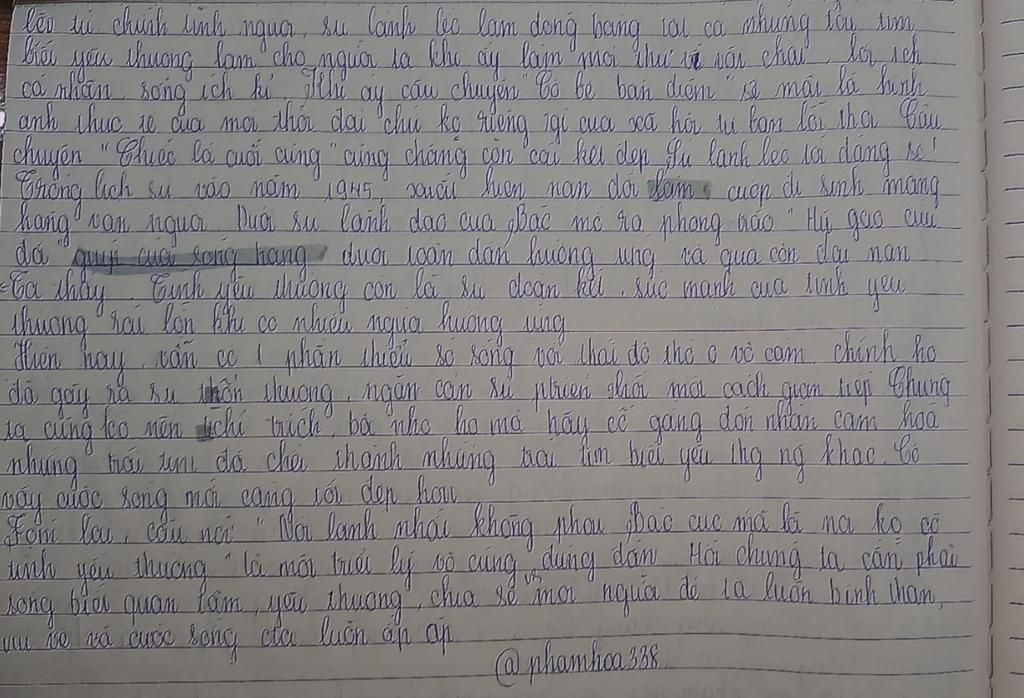 lẽo từ chính tình người, sự lạnh lẽo làm đóng băng tất cả những tấm tim
biết yêu thương làm cho người ta khi ấy làm mọi thứ vì vài chai, lợi ích
cá nhân, sống ích kỉ. Khi ấy câu chuyện "Cô bé bán diêm" sẽ mãi là hình
ảnh thực tế của mọi thời đại chứ ko riêng gì của xã hội tư bản lối thời. Câu
chuyện "Chiếc lá cuối cùng" cũng chẳng còn cái kết đẹp. Sự lạnh lẽo tới đáng sợ!
Trong lịch sử vào năm 1945 xuất hiện nạn đói làm cướp đi sinh mạng
hàng vạn người. Dưới sự lãnh đạo của Bác mở ra phong trào "Hũ gạo cứu
đói" được toàn dân hưởng ứng và qua cơn đói nạn
=Ta thấy. Tình yêu thương còn là sự đoàn kết, sức mạnh của tình yêu
thương rất lớn khi có nhiều người hưởng ứng
Hiện nay, vẫn có 1 phần thiểu số sống với thái độ thờ ơ vô cảm, chính họ
đã gây ra sự tổn thương, ngăn cản sự phát triển một cách gián tiếp. Chúng
ta cũng ko nên chỉ trích, bỏ nhỏ họ mà hãy cố gắng đón nhận cảm hoá
những trái tim đã chết thành những trái tim biết yêu thg ng khác. Có
vậy cuộc sống mới càng tốt đẹp hơn
Tóm lại, câu nói "Nơi lạnh nhất không phải Bắc cực mà là nơi ko có
tình yêu thương" là một triết lý vô cùng đúng đắn. Mỗi chúng ta cần phải
sống biết quan tâm, yêu thương, chia sẻ vs mọi người để ta luôn bình thản,
vui vẻ và cuộc sống của luôn ấm áp
@phamhoa338